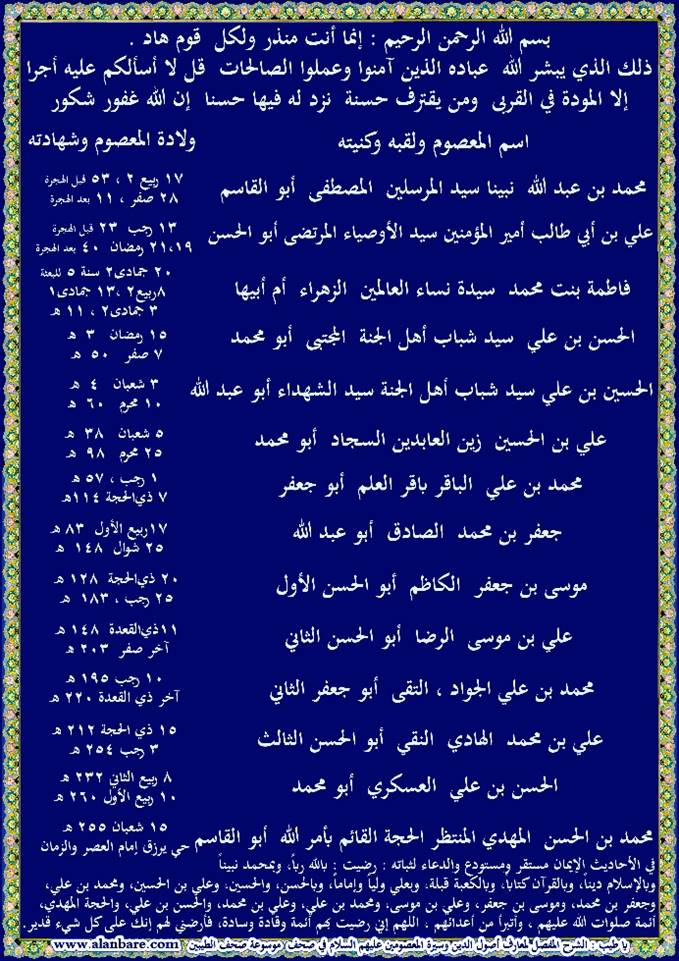 بسم الله الرحمن الرحيم : إنما أنت منذر ولكل قوم هاد .
ذلك الذي يبشر الله عباده الذين آمنوا وعملوا الصالحات قل لا أسألكم عليه أجرا
إلا المودة في القربى ومن يقترف حسنة نزد له فيها حسنا إن الله غفور شكور
اسم المعصوم ولقبه وكنيته ولادة المعصوم وشهادته
محمد بن عبد الله نبينا سيد المرسلين المصطفى أبو القاسم
١٧ ربيع ٢ ، ٥٣ قبل الهجرة
٢٨ صفر ، ١١ بعد الهجرة
علي بن أبي طالب أمير المؤمنين سيد الأوصياء المرتضى أبو الحسن
١٣ رجب ٢٣ قبل الهجرة
٢١،١٩ رمضان ٤٠ بعد الهجرة
فاطمة بنت محمد سيدة نساء العالمين الزهراء أم أبيها
٢٠ جمادى٢ سنة ٥ للبعثة
٨ربيع٢ ،١٣ جمادى١
٣ جمادى٢ ، ١١ هـ
الحسن بن علي سيد شباب أهل الجنة المجتبى أبو محمد
١٥ رمضان ٣ هـ
٧ صفر ٥٠ هـ
الحسين بن علي سيد شباب أهل الجنة سيد الشهداء أبو عبد الله
٣ شعبان ٤ هـ
١٠ محرم ٦٠ هـ
علي بن الحسين زين العابدين السجاد أبو محمد
٥ شعبان ٣٨ هـ
٢٥ محرم ٩٨ هـ
محمد بن علي الباقر باقر العلم أبو جعفر
١ رجب ، ٥٧ هـ
٧ ذي الحجة ١١٤هـ
جعفر بن محمد الصادق أبو عبد الله
١٧ربيع الأول ٨٣ هـ
٢٥ شوال ١٤٨ هـ
موسى بن جعفر الكاظم أبو الحسن الأول
٢٠ ذي الحجة ١٢٨ هـ
٢٥ رجب ، ١٨٣ هـ
علي بن موسى الرضا أبو الحسن الثاني
١١ذي القعدة ١٤٨ هـ
آخر صفر ٢٠٣ هـ
محمد بن علي الجواد ، التقى أبو جعفر الثاني
١٠ رجب ١٩٥ هـ
آخر ذي القعدة ٢٢٠ هـ
علي بن محمد الهادي النقي أبو الحسن الثالث
١٥ ذي الحجة ٢١٢ هـ
٣ رجب ٢٥٤ هـ
الحسن بن علي العسكري أبو محمد
٨ ربيع الثاني ٢٣٢ هـ
١٠ ربيع الأول ٢٦٠ هـ
محمد بن الحسن المهدي المنتظر الحجة القائم بأمر الله أبو القاسم
١٥ شعبان ٢٥٥ هـ
حي يرزق إمام العصر والزمان
في الأحاديث الإيمان مستقر ومستودع والدعاء لثباته : رضيت : بالله رباً، وبمحمد نبيناً
وبالإسلام ديناً، وبالقرآن كتاباً، وبالكعبة قبلة. وبعلي ولياً وإماماً، وبالحسن، والحسين. وعلي بن الحسين، ومحمد بن علي،
وجعفر بن محمد، وموسى بن جعفر، وعلي بن موسى، ومحمد بن علي، وعلي بن محمد، والحسن بن علي، والحجة المهدي،
أئمة صلوات الله عليهم ، وأتبرأ من أعدائهم ، اللهم إني رضيت بهم أئمة وقادة وسادة، فأرضني لهم إنك على كل شيء قدير.
يا طيب : الشرح المفصل لمعارف أصول الدين وسيرة المعصومين عليهم السلام في صحف موسوعة صحف الطيبين www.alanbare.com